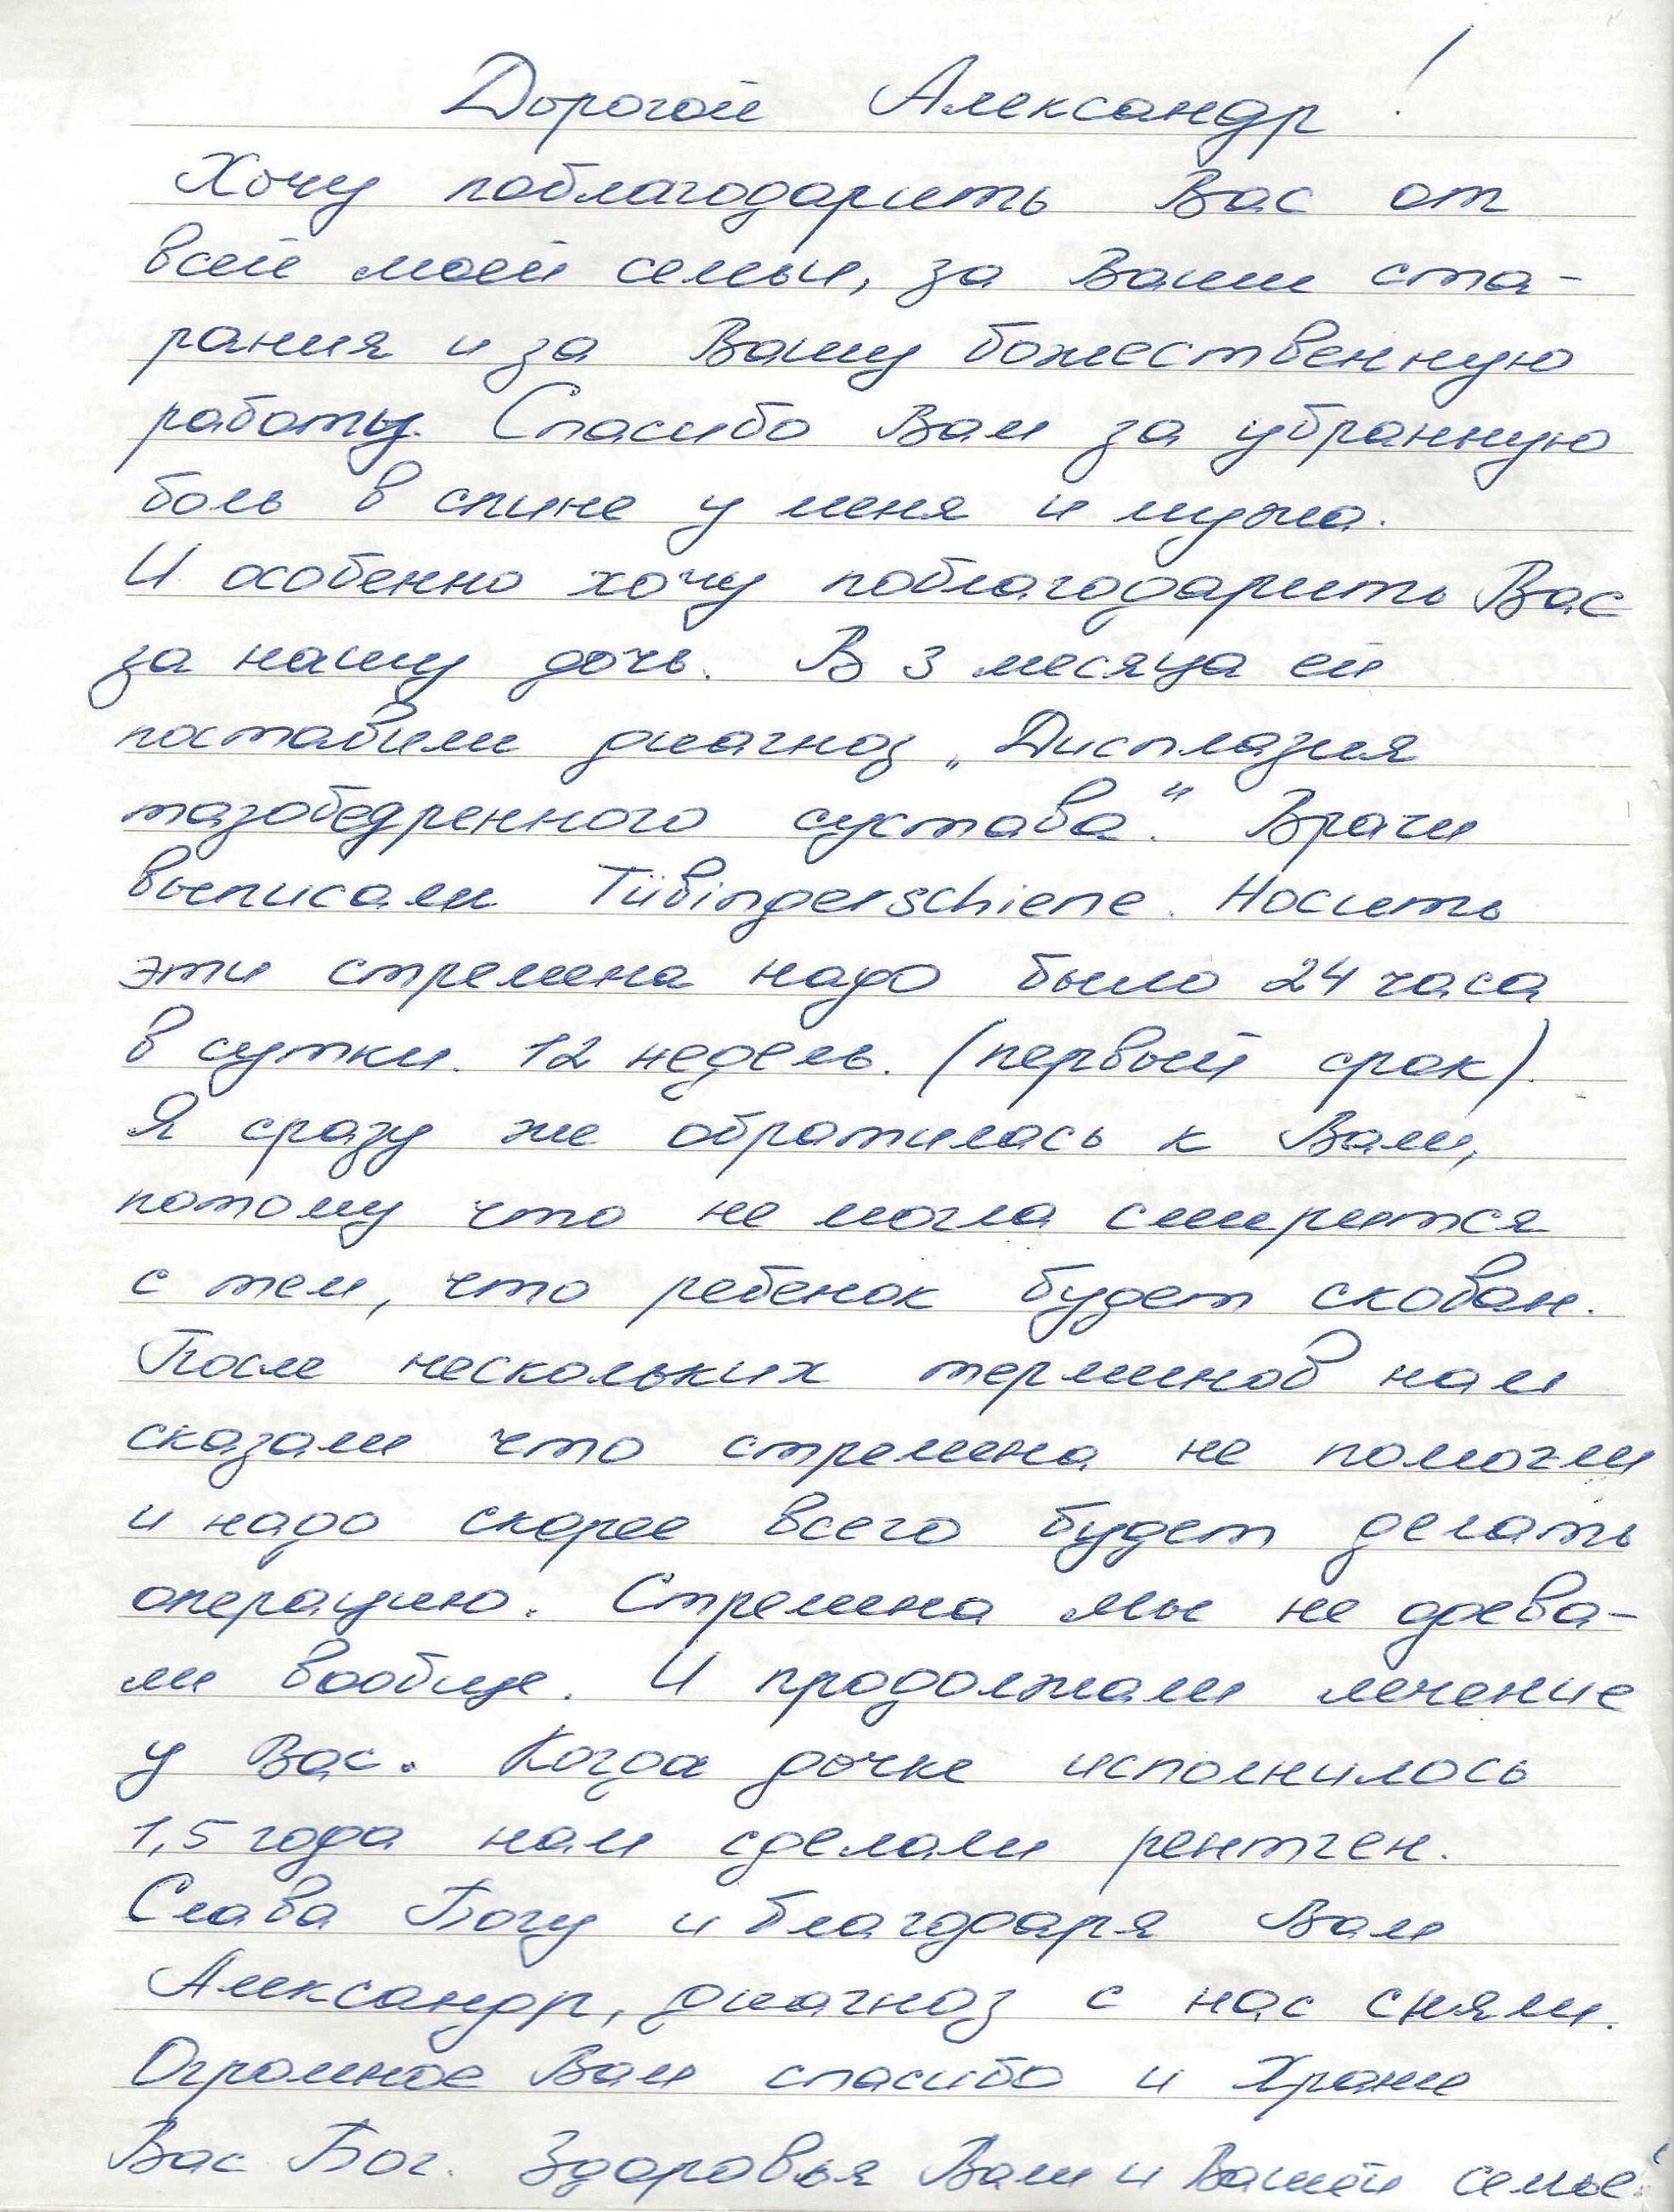 Дорогой Александр!
Хочу поблагодарить Вас от
всей моей семьи, за Ваши ста-
рания и за Вашу божественную
работу. Спасибо Вам за убранную
боль в спине у меня и мужа.
И особенно хочу поблагодарить Вас
за нашу дочь. В 3 месяца ей
поставили диагноз „Дисплазия
тазобедренного сустава". Врачи
выписали Tübingerschiene. Носить
эти стремена надо было 24 часа
в сутки. 12 недель. (первый срок).
Я сразу же обратилась к Вам,
потому что не могла смирится
с тем, что ребенок будет скован.
После нескольких терминов нам
сказали что стремена не помогли
и надо скорее всего будет делать
операцию. Стремена мы не одева-
ли вообще. И продолжали лечение
у Вас. Когда дочке исполнилось
1,5 года нам сделали рентген.
Слава Богу и благодаря Вам
Александр, диагноз с нас сняли.
Огромное Вам спасибо и Храни
Вас Бог. Здоровья Вам и Вашей семье!